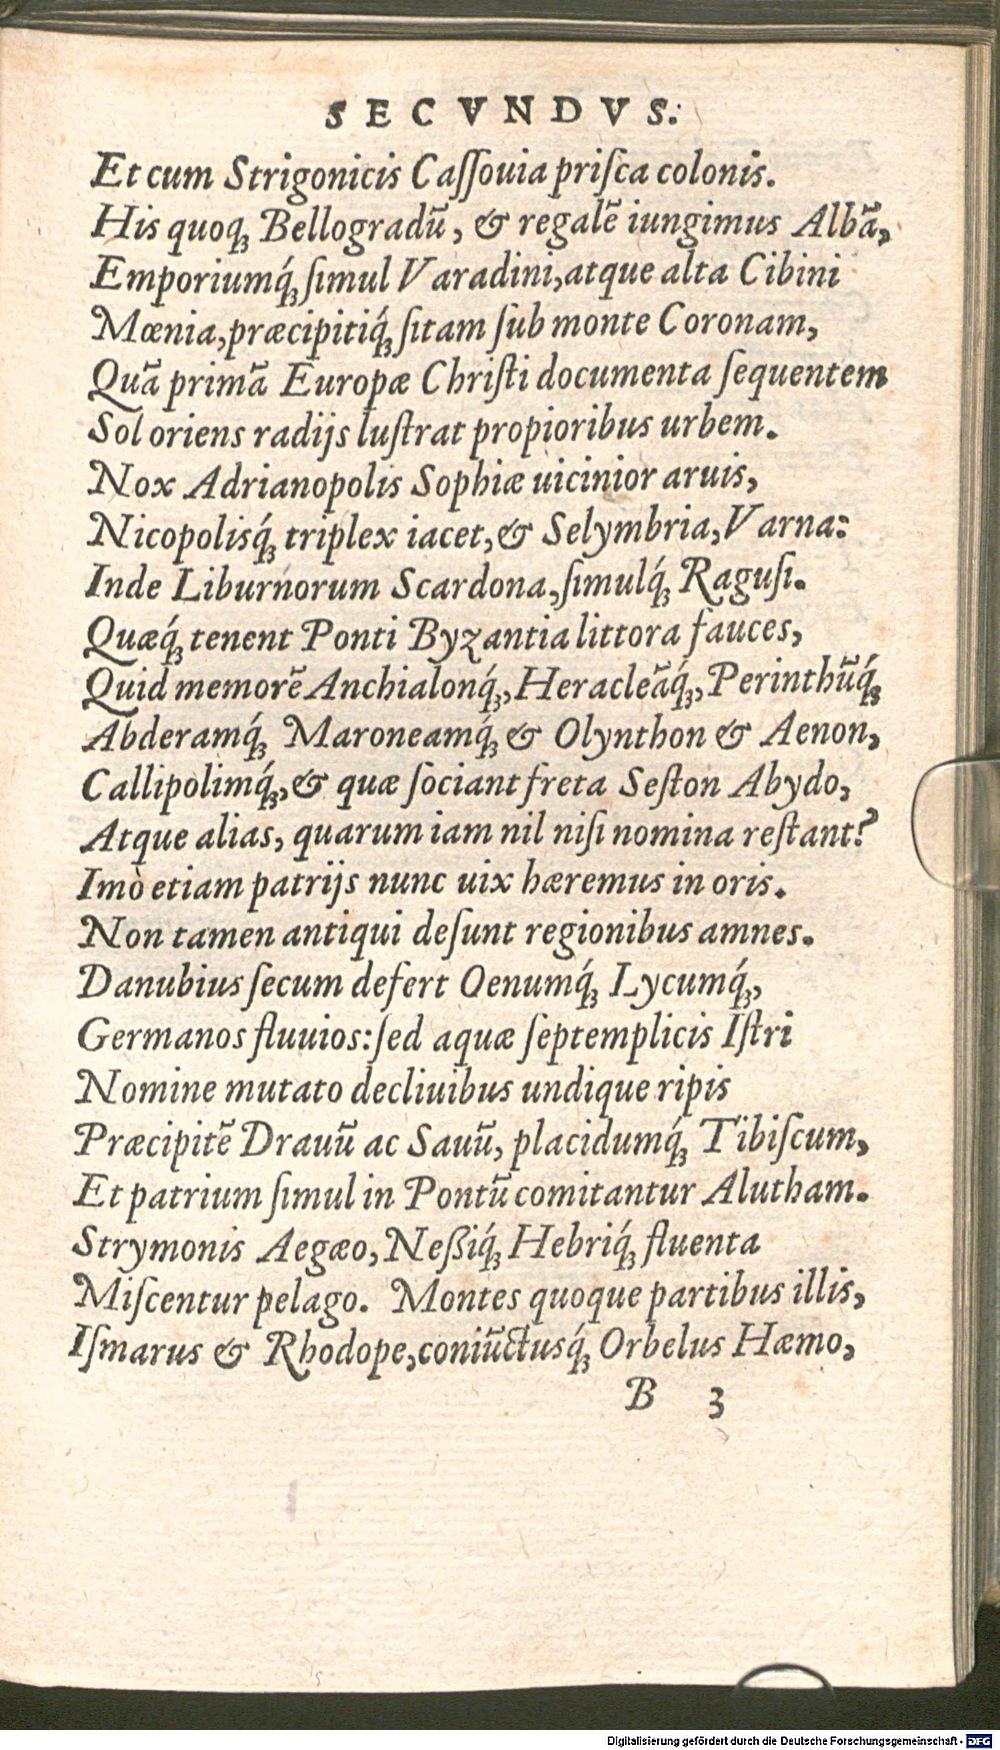 SECVNDVS.
Et cum Strigonicis Caſſouia priſca colonis.
His quoq; Bellogradū, & regalē iungimus Albā,
Emporiumq́; ſimul Varadini, atque alta Cibini
Mœnia, præcipitiq́; ſitam ſub monte Coronam,
Quā primā Europæ Chriſti documenta ſequentem
Sol oriens radijs luſtrat propioribus urbem.
Nox Adrianopolis Sophiæ uicinior aruis,
Nicopolisq́; triplex iacet, & Selymbria, Varna:
Inde Liburnorum Scardona, ſimulq́; Raguſi.
Quæq́; tenent Ponti Byzantia littora fauces,
Quid memorē Anchialonq́;, Heracleāq́;, Perinthūq́;
Abderamq́; Maroneamq́; & Olynthon & Aenon,
Callipolimq́;, & quæ ſociant freta Seſton Abydo,
Atque alias, quarum iam nil niſi nomina reſtant?
Imò etiam patrijs nunc uix hæremus in oris.
Non tamen antiqui deſunt regionibus amnes.
Danubius ſecum defert Oenumq́; Lycumq́;,
Germanos fluuios: ſed aquæ ſeptemplicis Iſtri
Nomine mutato decliuibus undique ripis
Præcipitē Drauū ac Sauū, placidumq́; Tibiſcum,
Et patrium ſimul in Pontū comitantur Alutham.
Strymonis Aegæo, Neßiq́; Hebriq́; fluenta
Miſcentur pelago. Montes quoque partibus illis,
Iſmarus & Rhodope, coniūctusq́; Orbelus Hæmo,
B 3
Digitalisierung gefördert durch die Deutsche Forschungsgemeinschaft - DFG